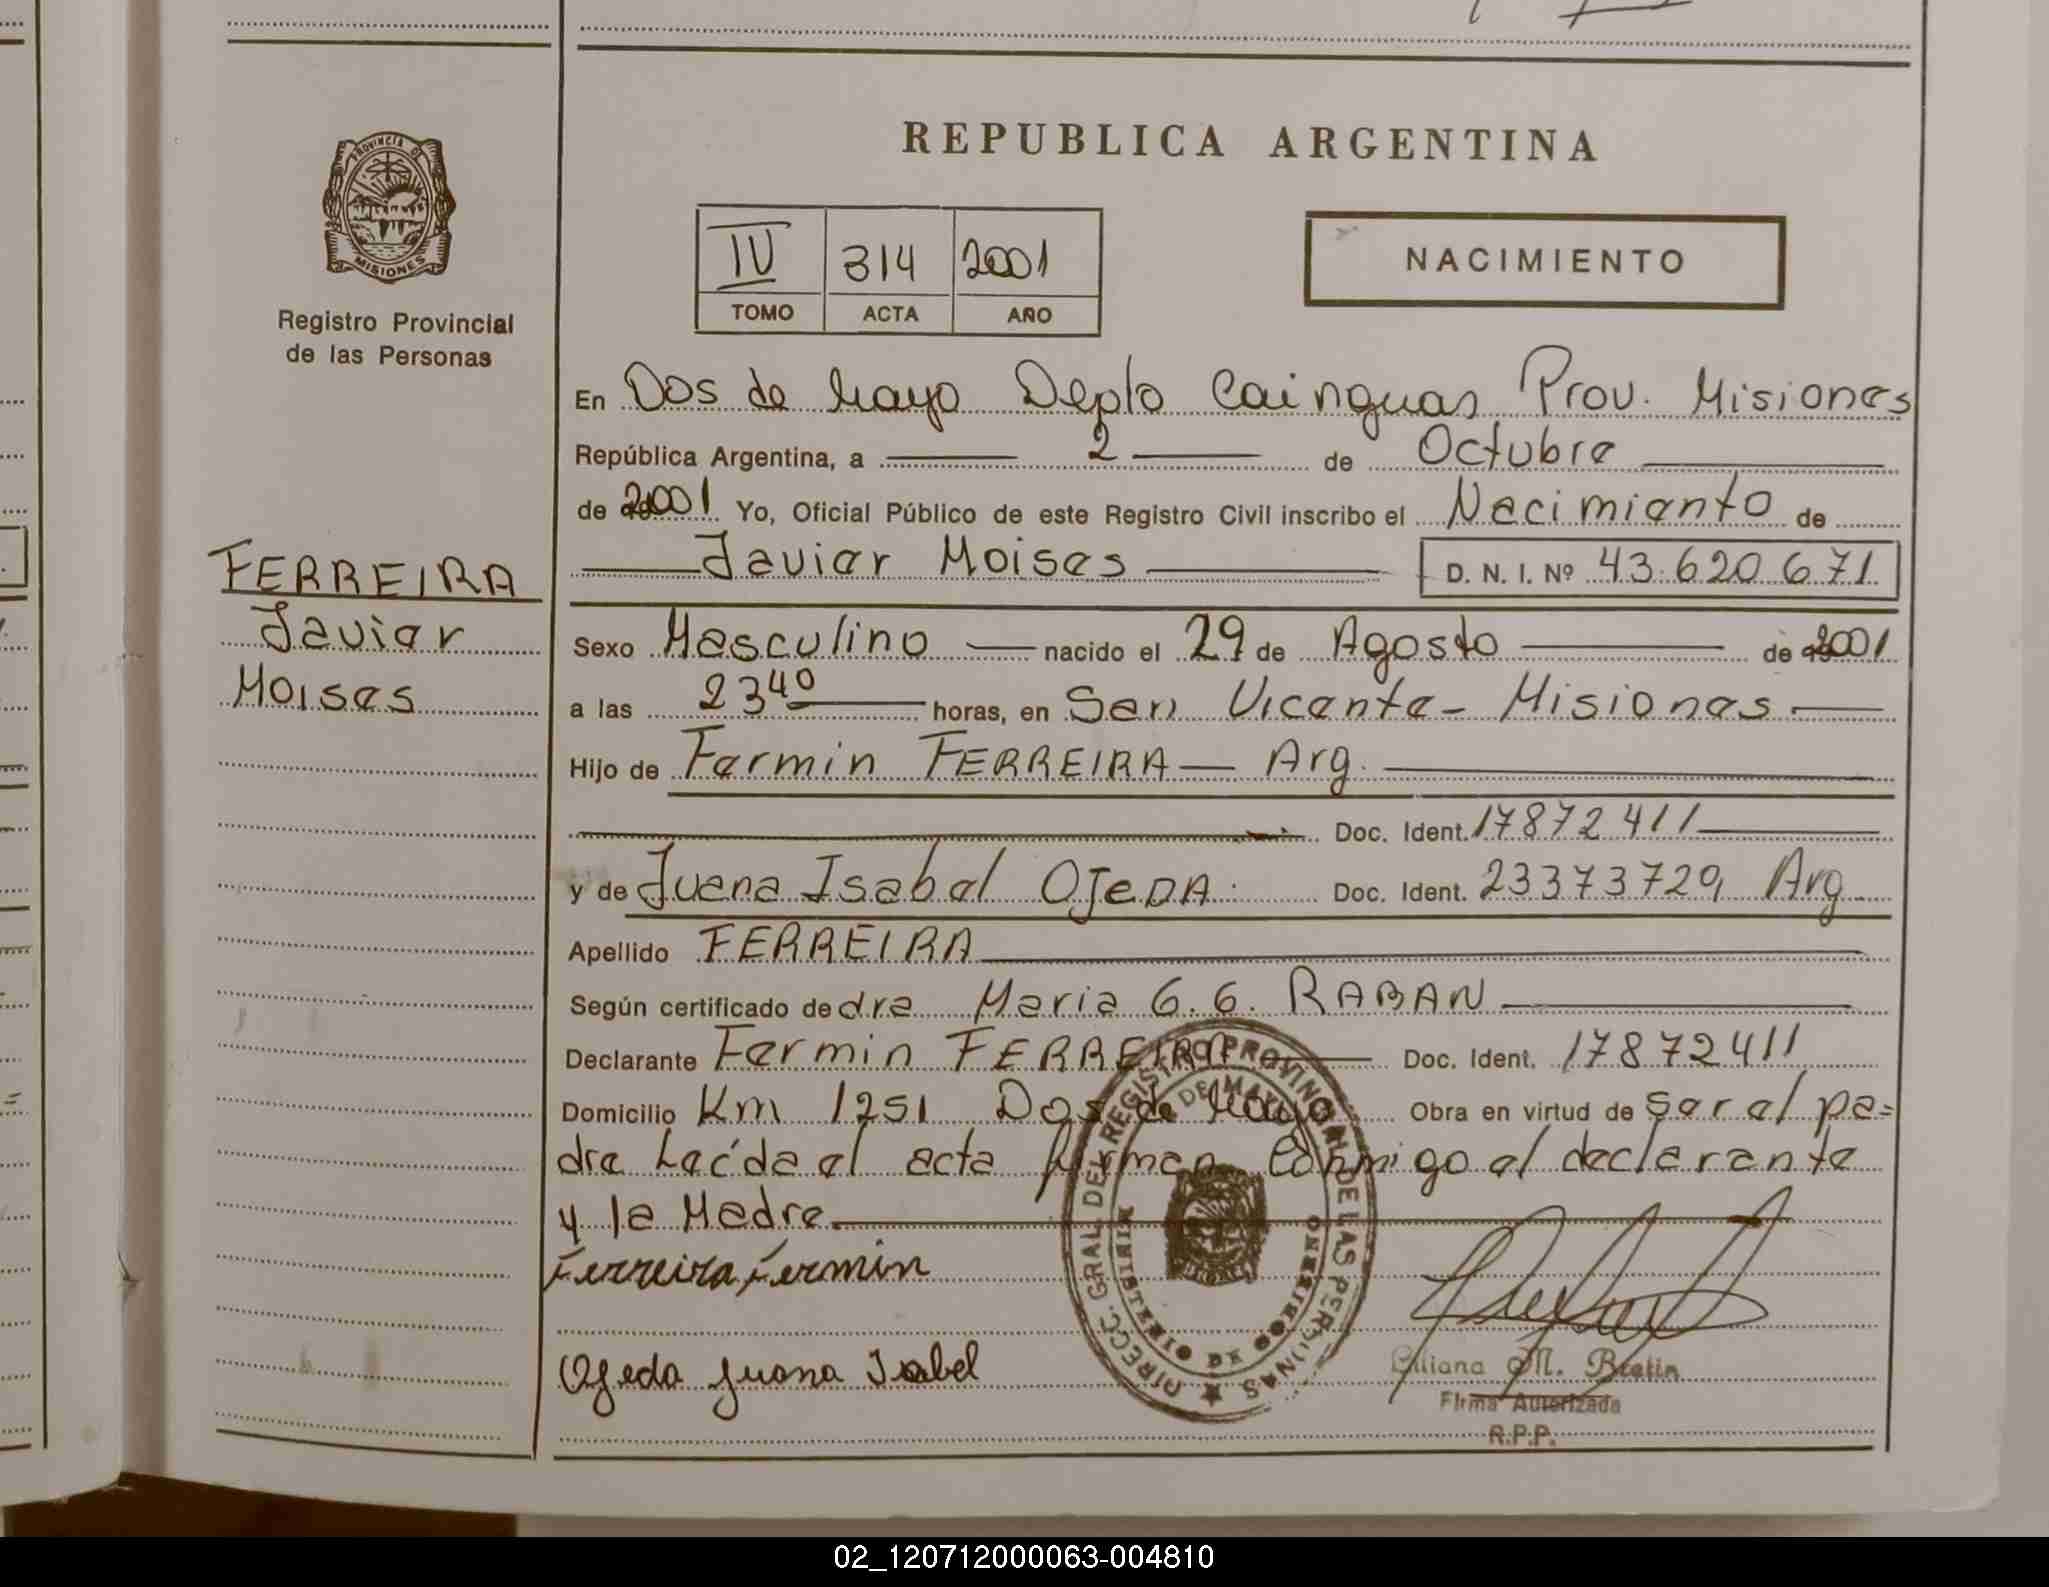 PROVINCIA DE
MISIONES
Registro Provincial
de las Personas
FERREIRA
Javier
Moises
REPUBLICA ARGENTINA
IV 314 2001
TOMO ACTA AÑO
NACIMIENTO
En Dos de Mayo Depto Cainguas Prov. Misiones
República Argentina, a 2 de Octubre
de 2001 Yo, Oficial Público de este Registro Civil inscribo el Nacimiento de
Javier Moises D. N. I. Nº 43.620.671
Sexo Masculino nacido el 29 de Agosto de 2001
a las 23 40 horas, en San Vicente - Misiones
Hijo de Fermin FERREIRA - Arg.
Doc. Ident. 17872411
y de Juana Isabel OJEDA. Doc. Ident. 23373729 Arg
Apellido FERREIRA
Según certificado de dra Maria G. G. RABAN
Declarante Fermin FERREIRA Doc. Ident. 17872411
Domicilio Km 1251 Dos de Mayo Obra en virtud de ser el pa=
dre Leída el acta firman conmigo el declarante
y la Madre
Ferreira Fermin
Ojeda Juana Isabel
DIRECC. GRAL. DEL REGISTRO PROVINCIAL DE LAS PERSONAS
DE MAYO
MINISTERIO DE GOBIERNO
Liliana M. Bretin
Firma Autorizada
R.P.P.
02_120712000063-004810